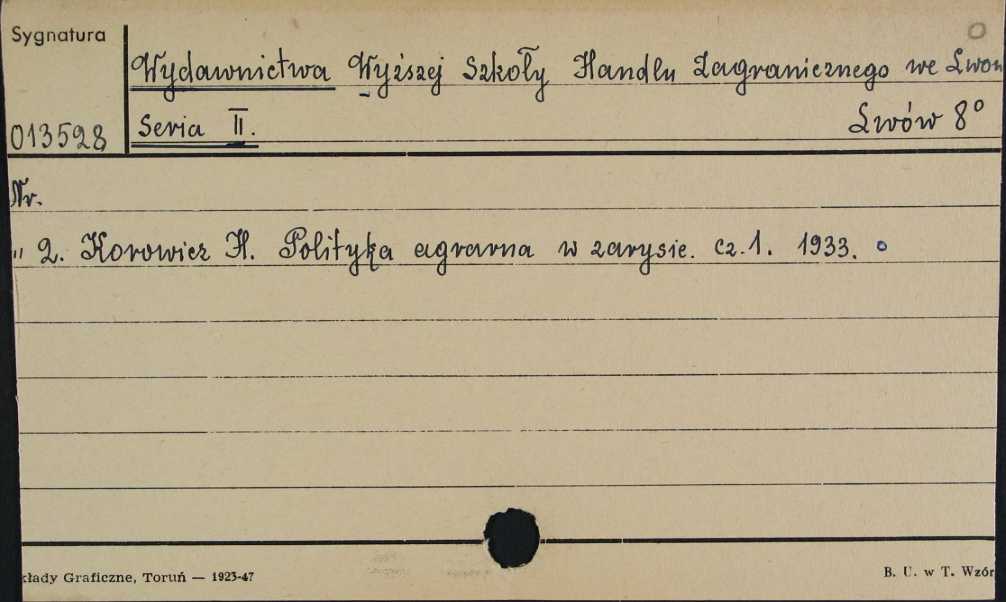 Sygnatura
Wydawnictwa Wyższej Szkoły Handlu Zagranicznego we Lwow
013528
Seria II.
Lwów 8°
Nr.
" 2. Korowicz H. Polityka agrarna w zarysie. cz. 1. 1933.
kłady Graficzne, Toruń — 1923-47
B. U. w T. Wzór